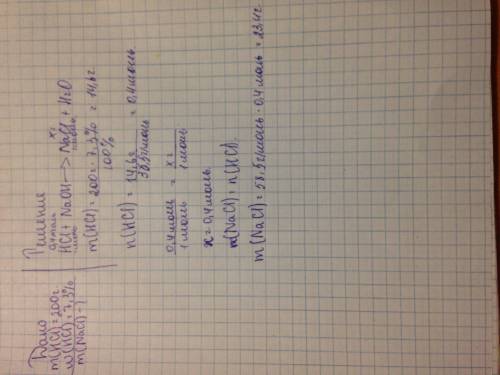 Дано
m(HCl)=200г.
w(HCl)=7,3%
m(NaCl)-?
Решение
0,4моль xг
HCl + NaOH —> NaCl + H2O
1моль 1моль
m(HCl) = 200г · 7,3% / 100% = 14,6г
n(HCl) = 14,6г / 36,5г/моль = 0,4 моль
0,4моль / 1 моль = xг / 1 моль
x = 0,4 моль
n(NaCl) = n(HCl).
m(NaCl) = 58,5г/моль · 0,4 моль = 23,4г